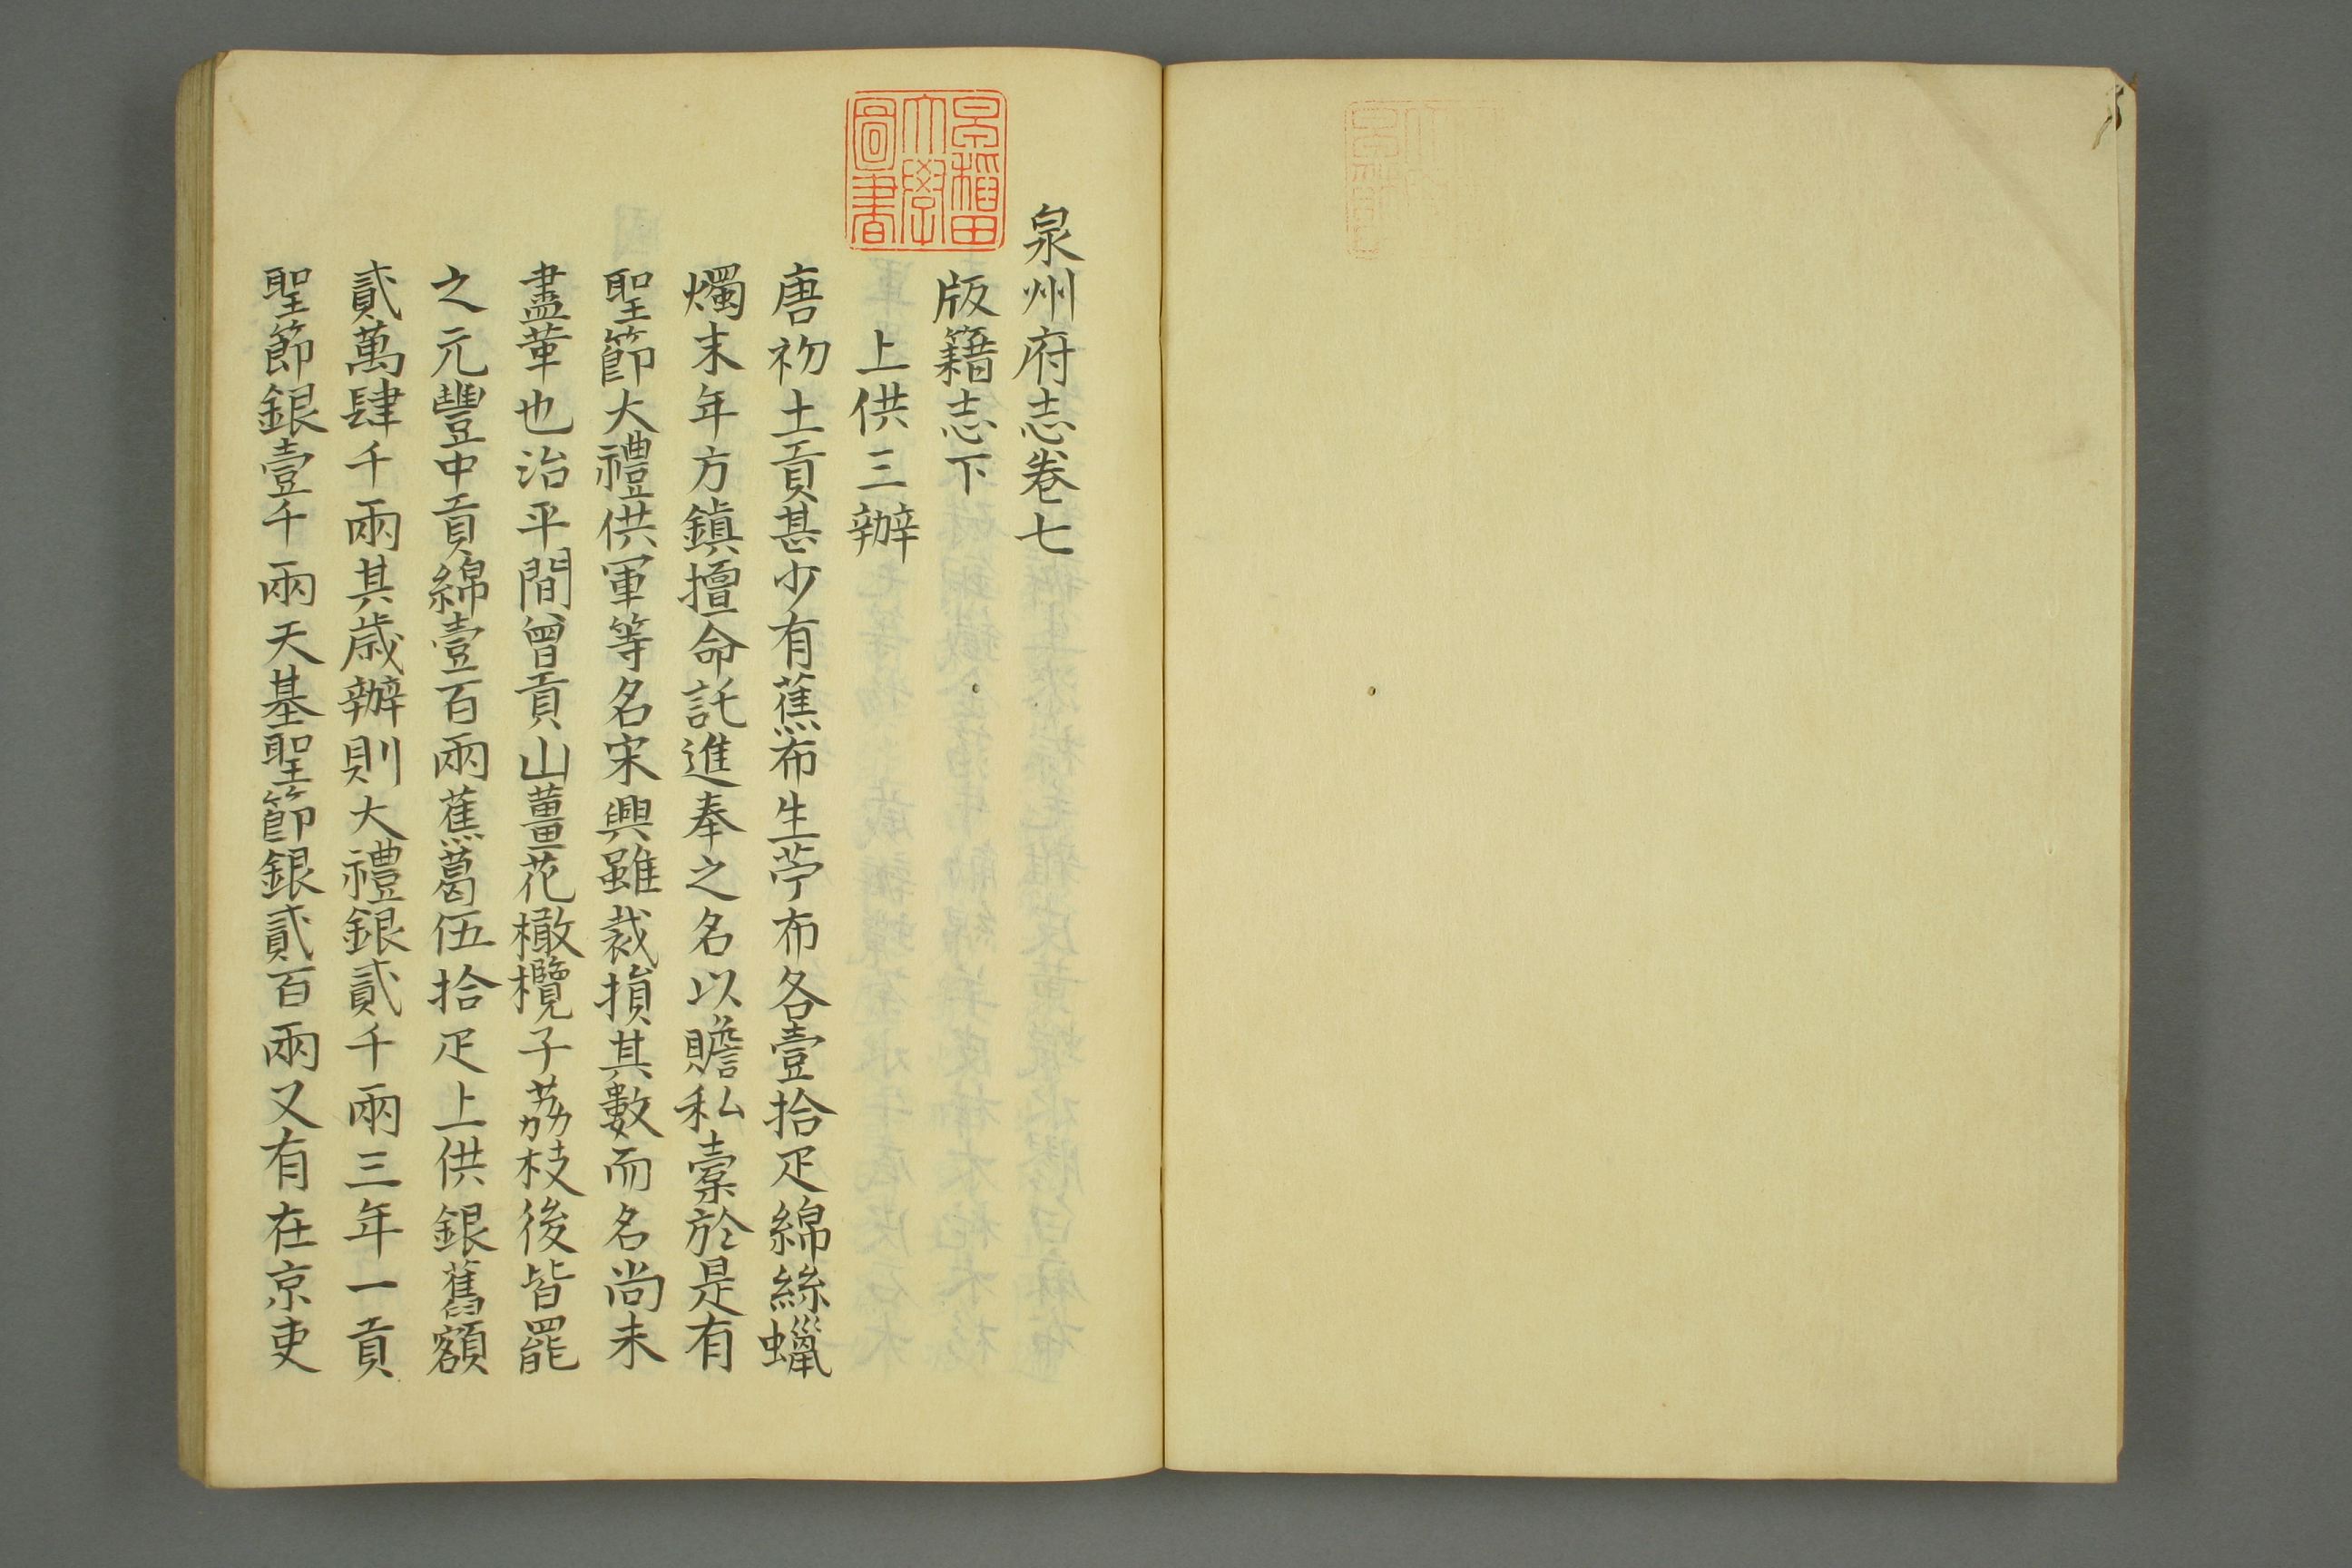 泉州府志卷七
版籍志下
上供三辦
唐初土貢甚少有蕉布生苧布各壹拾疋綿絲蠟
燭末年方鎮擅命託進奉之名以贍私槖於是有
聖節大禮供軍等名宋興雖裁損其數而名尚未
盡革也治平間曾貢山薑花橄欖子荔枝後皆罷
之元豐中貢綿壹百兩蕉葛伍拾疋上供銀舊額
貳萬肆千兩其歲辦則大禮銀貳千兩三年一貢
聖節銀壹千兩天基聖節銀貳百兩又有在京吏
早稻田
大學
圖書